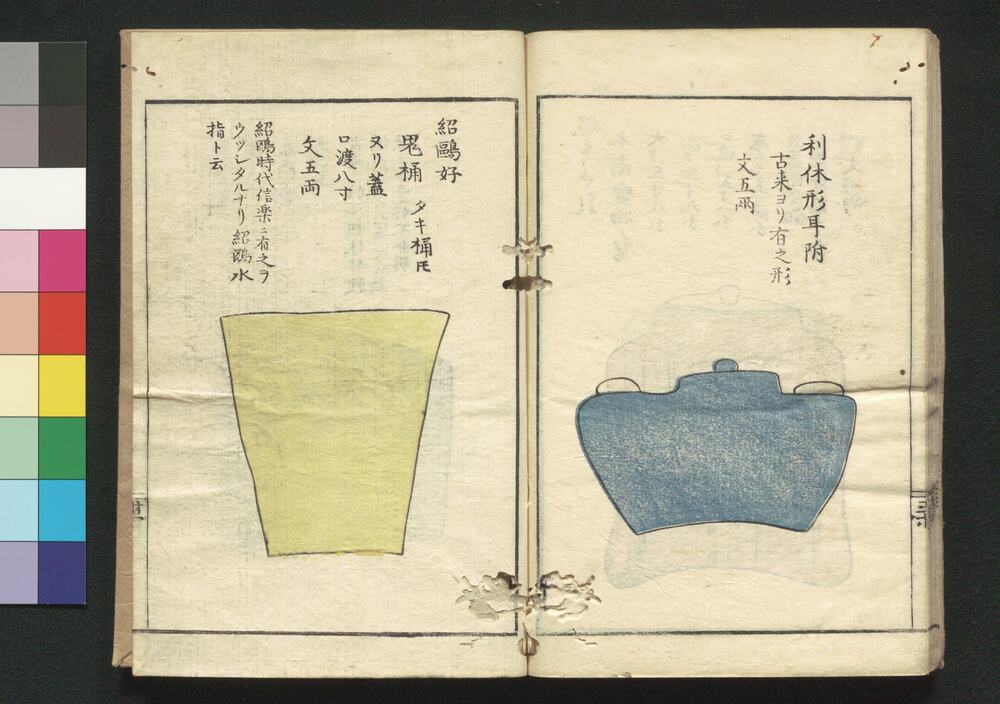 利休形耳附
古来ヨリ有之形
文五両
紹鷗好
鬼桶 タキ桶トモ
ヌリ蓋
口渡八寸
文五両
紹鷗時代信楽ニ有之ヲ
ウツシタルナリ紹鷗水
指ト云